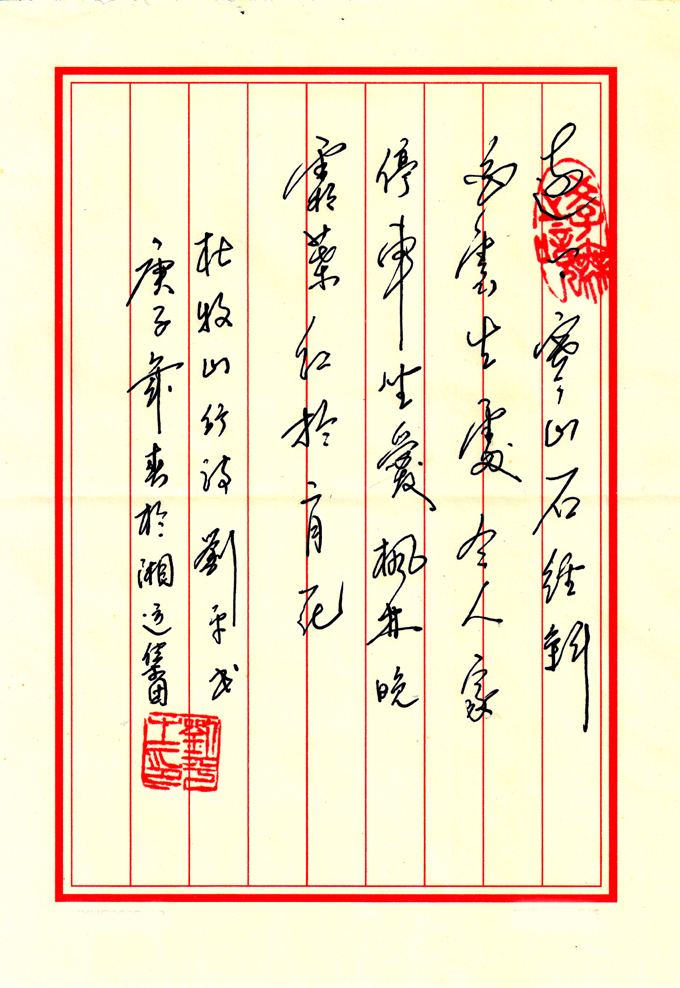 遠上寒山石徑斜
白雲生處有人家
停車坐愛楓林晚
霜葉紅於二月花
杜牧山行詩 劉平
庚子年春於湘運集團